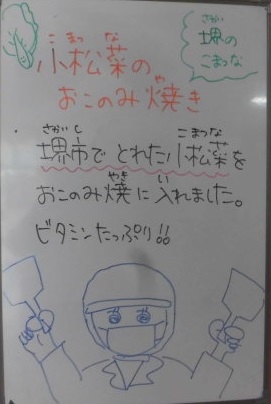 こまつな
小松菜の
おこのみ焼き
や
さかい
堺の
こまつな
さかいし
こまつな
堺市でとれた小松菜を
やき
い
おこのみ焼に入れました。
ビタミンたっぷり!!